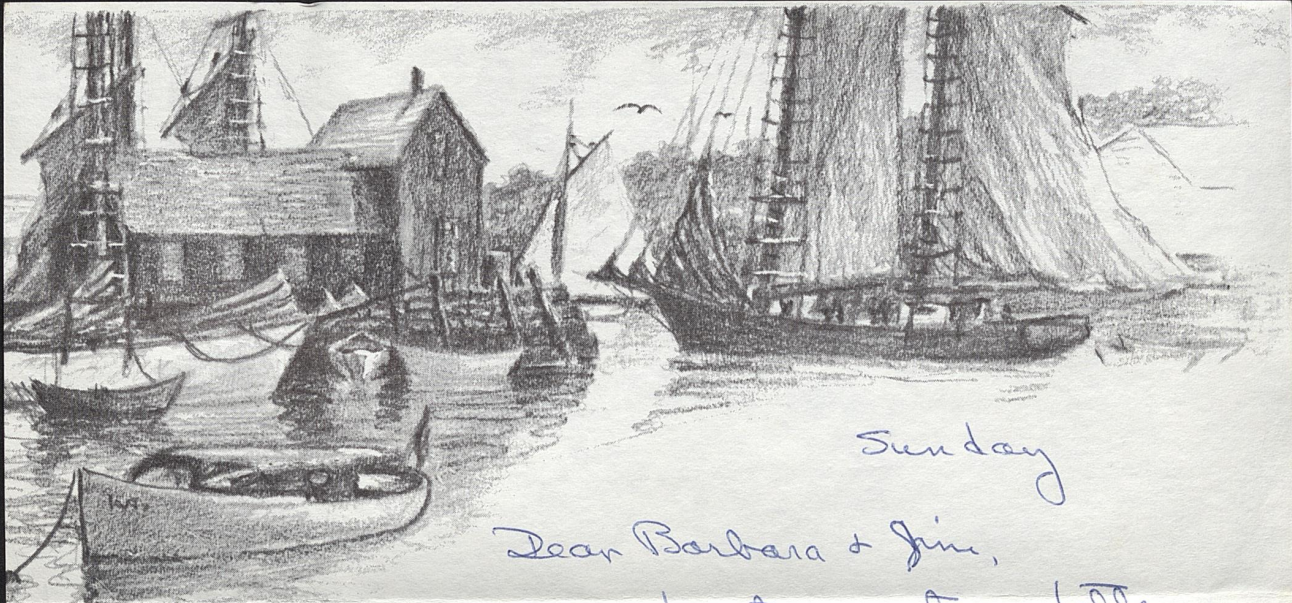 Sunday
Dear Barbara & Jim,